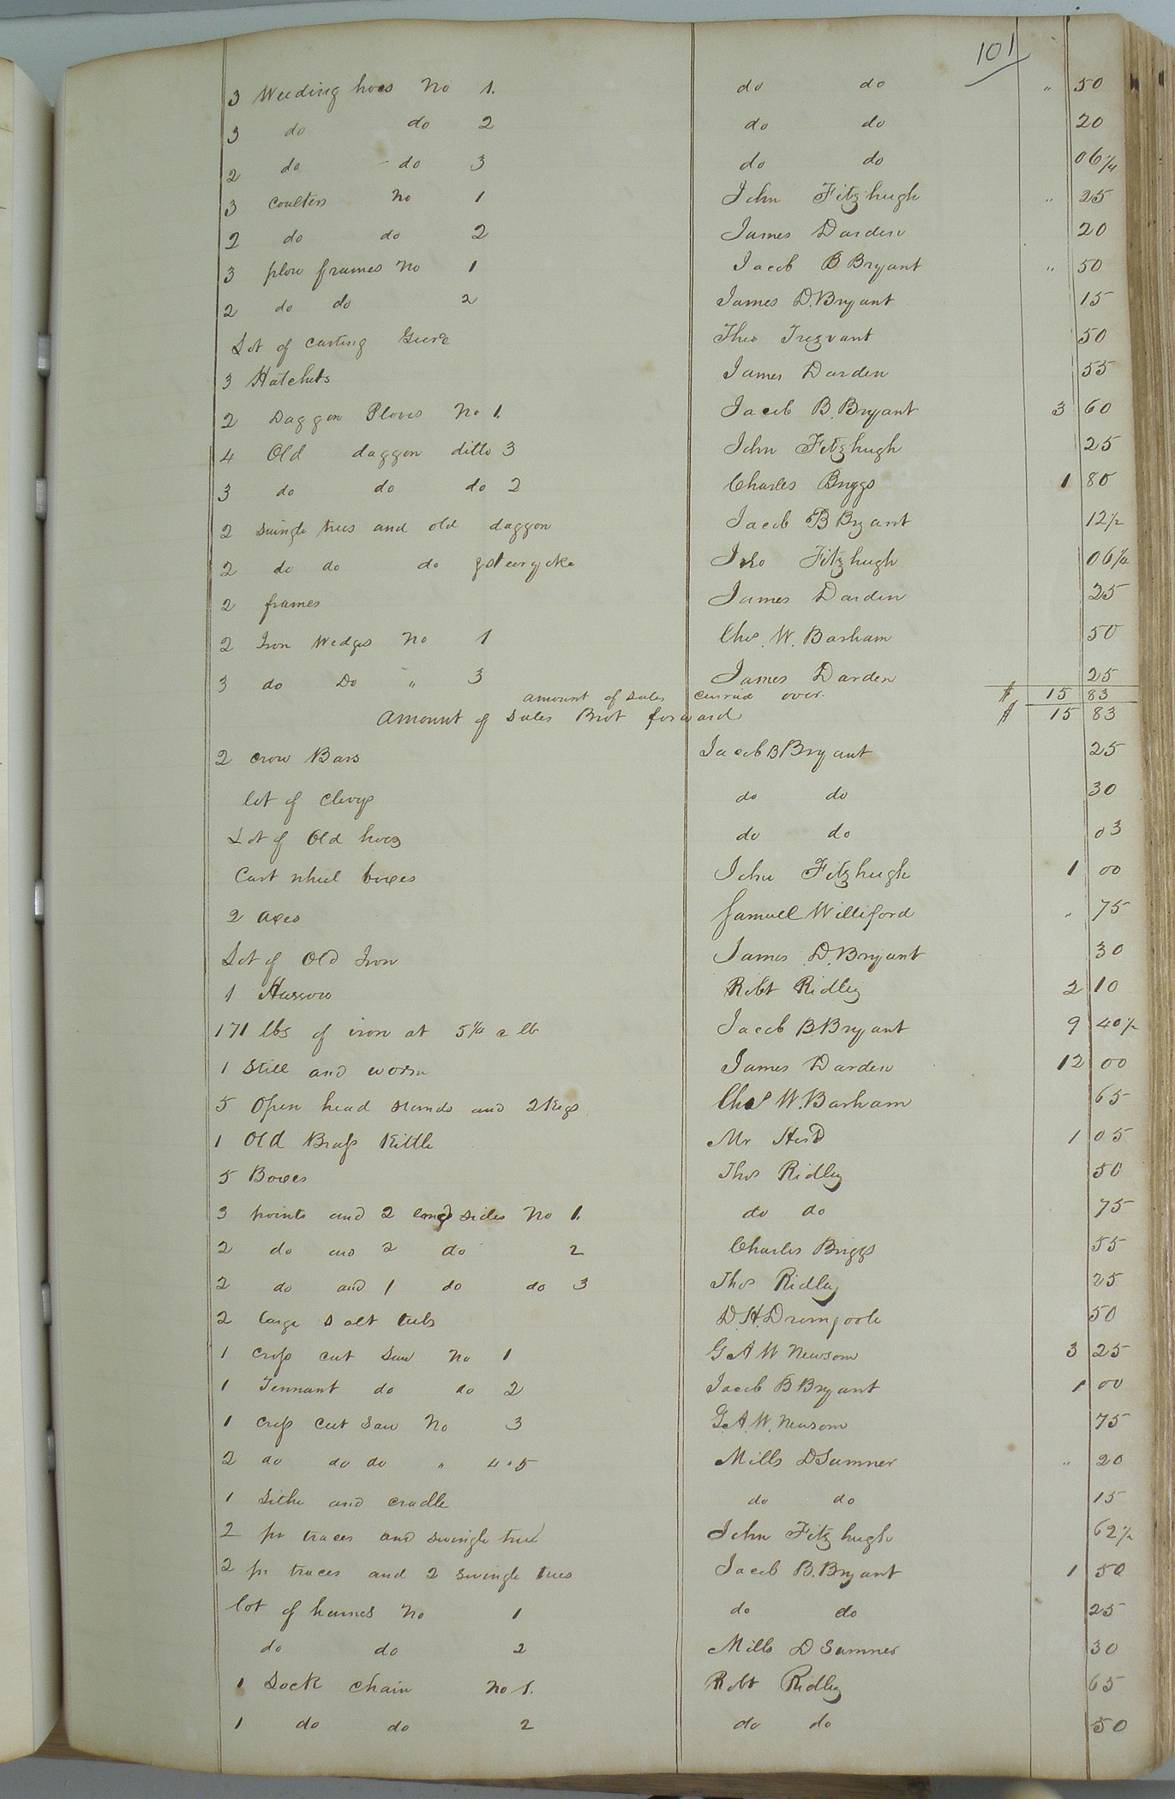 101
3 Weeding hoes No 1. do do " 50
3 do do 2 do do 20
2 do do 3 do do 06 1/4
3 Coulters No 1 John Fitzhugh " 25
2 do do 2 James Darden 20
3 plow frames No 1 Jacob B Bryant " 50
2 do do 2 James D. Bryant 15
Lot of Carting Geere Theo Tregvant 50
3 Hatchets James Darden 55
2 Daggon Plows No 1. Jacob B. Bryant 3 60
4 Old daggon ditto 3 John Fitzhugh 25
3 do do do 2 Charles Briggs 1 80
2 swingle trees and old daggon Jacob B Bryant 12 1/2
2 do do do Fitzhugh 06 1/4
2 frames James Darden 25
2 Iron Wedges No 1 Chs. W. Barham 50
3 do Do " 3 James Darden 25
amount of sales carrid over. $ 15 83
Amount of Sales Brot forward $ 15 83
2 crow Bars Jacob B Bryant 25
lot of clevys do do 30
Lot of Old hoes do do 03
Cart wheel boxes John Fitzhugh 1 00
2 axes Samuel Williford " 75
Lot of Old Iron James D. Bryant 30
1 Harrow Robt Ridley 2 10
171 lbs of iron at 5 1/2 a lb Jacob B Bryant 9 40 1/2
1 Still and worm James Darden 12 00
5 Open head stands and 2 Kegs Chs W. Barham 65
1 Old Brass Kittle Mr 1 05
5 Boxes Thos Ridley 50
3 points and 2 land sides No 1. do do 75
2 do and 2 do 2 Charles Briggs 55
2 do and 1 do do 3 Thos Ridley 25
2 large Salt tubs D. H. Dromgoole 50
1 cross cut Saw No 1 G A W Newsom 3 25
1 Tennant do do 2 Jacob B Bryant 1 00
1 cross cut Saw No 3 G. A. W. Newsom 75
2 do do do " 4.5 Mills D Sumner " 20
1 Sithe and cradle do do 15
2 pr traces and swingle tree John Fitzhugh 62 1/2
2 pr traces and 2 swingle trees Jacob B. Bryant 1 50
lot of hames No 1 do do 25
do do 2 Mills D Sumner 30
1 Lock chain No 1. Robt Ridley 65
1 do do 2 do do 50